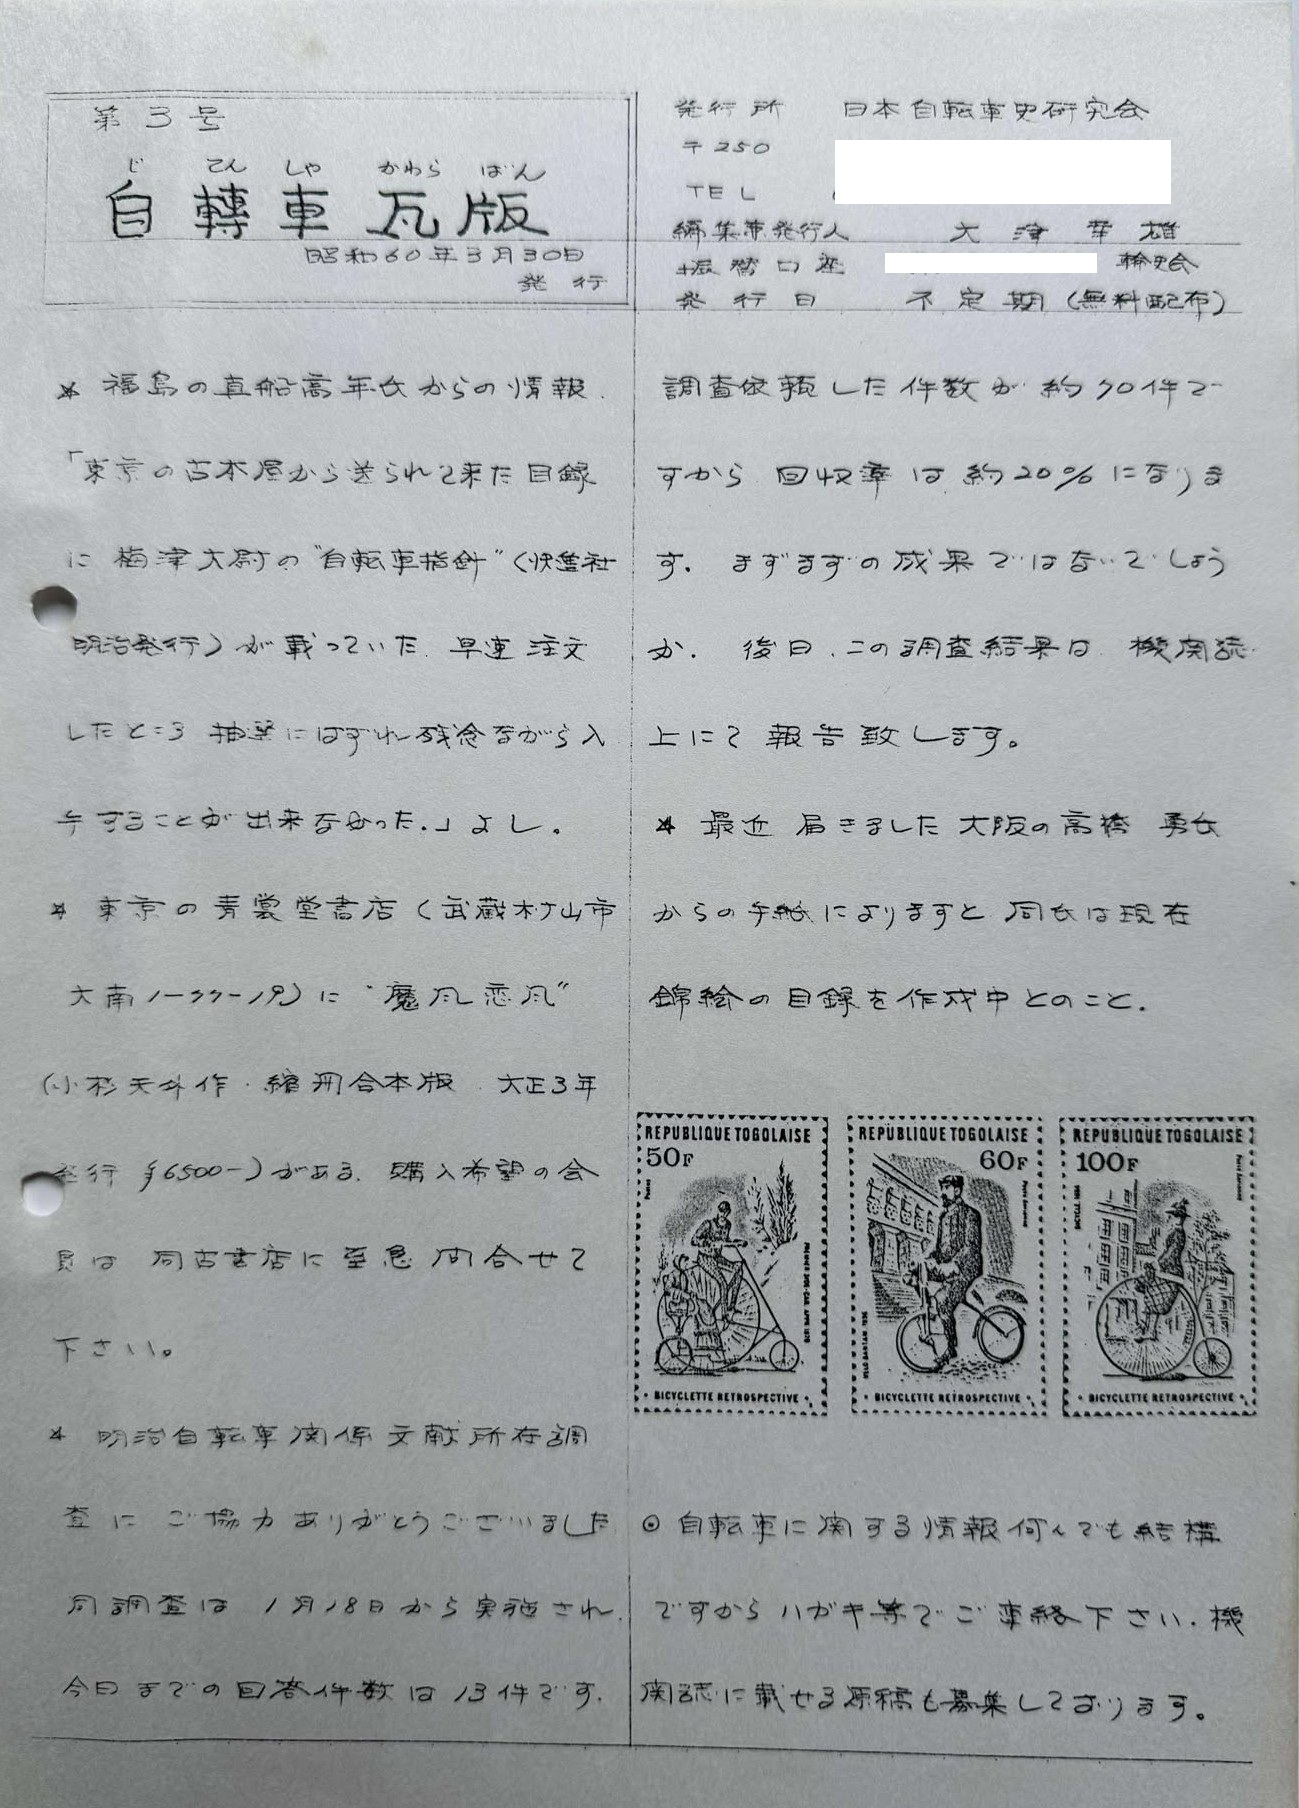 第3号
じ てん しゃ かわら ばん
自轉車瓦版
昭和60年3月30日
発行
発行所 日本自転車史研究会
〒250
TEL
編集兼発行人 大津幸雄
振替口座 輪史会
発行日 不定期(無料配布)
* 福島の真船高年氏からの情報.
「東京の古本屋から送られて来た目録
に 梅津大尉の"自転車指針"(快進社
明治発行)が載っていた. 早速 注文
したところ 抽選にはずれ残念ながら入
手することが出来なかった.」よし。
* 東京の青裳堂書店(武蔵村山市
大南1-77-19)に "魔風恋風"
(小杉天外作・縮刷合本版 大正3年
発行 ¥6500-)がある. 購入希望の会
員は 同古書店に至急問合せて
下さい。
* 明治自転車関係文献所在調
査に ご協力ありがとうございました
同調査は 1月18日から実施され.
今日までの回答件数は13件です.
調査依頼した件数が約70件で
すから 回収率は約20%になりま
す. まずまずの成果ではないでしょう
か. 後日,この調査結果は 機関誌
上にて報告致します。
* 最近届きました大阪の高橋 勇氏
からの手紙によりますと 同氏は現在
錦絵の目録を作成中とのこと.
REPUBLIQUE TOGOLAISE
50F
BICYCLETTE RETROSPECTIVE
REPUBLIQUE TOGOLAISE
60F
BICYCLETTE RETROSPECTIVE
REPUBLIQUE TOGOLAISE
100F
BICYCLETTE RETROSPECTIVE
⊙ 自転車に関する情報何んでも結構
ですからハガキ等でご連絡下さい. 機
関誌に載せる原稿も募集しております。